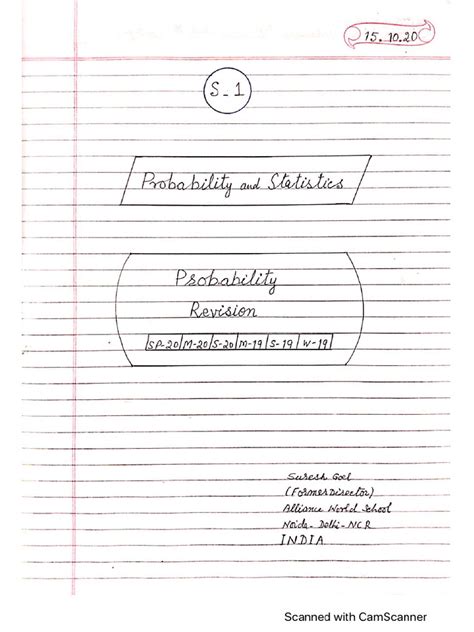 15.10.20
S-1
Probability and Statistics
Probability
Revision
SP-20|M-20|S-20|M-19|S-19|W-19|
Suresh Goel
(Former Director)
Alliance World School
Noida-Delhi-NCR
INDIA
Scanned with CamScanner